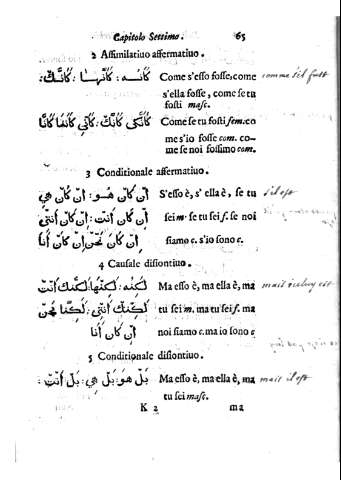 Capitolo Settimo. 65
2 Assimilatiuo affermatiuo.
كَاَنّه : كَاَنّهَا : كَاَنَّكَ : Come s'esso fosse, come
s'ella fosse, come se tu
fosti masc.
كَاَنَّكِ Come se tu fosti fem. co
me s'io fosse com. co-
me se noi fossimo com.
3 Conditionale affermatiuo.
اِنْ كَانَ هُوَ : اِنْ كَانَ هِيَ S'esso è, s'ella è, se tu
اِنْ كَانَ اَنْتَ : اِنْ كَانَ اَنْتِ sei m. se tu sei f. se noi
اِنْ كَانَ نَحْنُ اِنْ كَانَ أَنَا siamo c. s'io sono c.
4 Causale disiontiuo.
لَكِنَّهُ : لَكِنَّهَا : لَكِنَّكَ اَنْتَ Ma esso è, ma ella è, ma
لَكِنَّكِ اَنْتِ : لَكِنَّا نَحْنُ tu sei m. ma tu sei f. ma
اِنْ كَانَ أَنَا noi siamo c. ma io sono c
5 Conditionale disiontiuo.
بَلْ هُوَ : بَلْ هِيَ : بَلْ اَنْتَ : Ma esso è, ma ella è, ma
tu sei masc.
K 2 ma